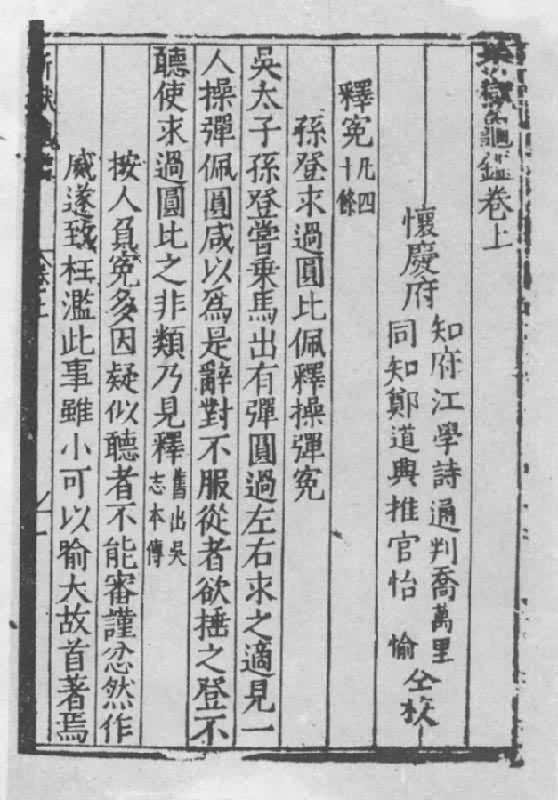 折獄龜鑑卷上
懷慶府
知府江學詩通判喬萬里
同知鄭道興推官怡愉
仝校
釋冤凡四十餘
孫登求過圓比佩釋操彈冤
吳太子孫登嘗乗馬出有彈圓過左右求之適見一
人操彈佩圓咸以為是辭對不服從者欲捶之登不
聽使求過圓比之非類乃見釋舊出吳志本傳
按人負冤多因疑似聽者不能審謹忿然作
威遂致枉濫此事雖小可以喻大故首著焉